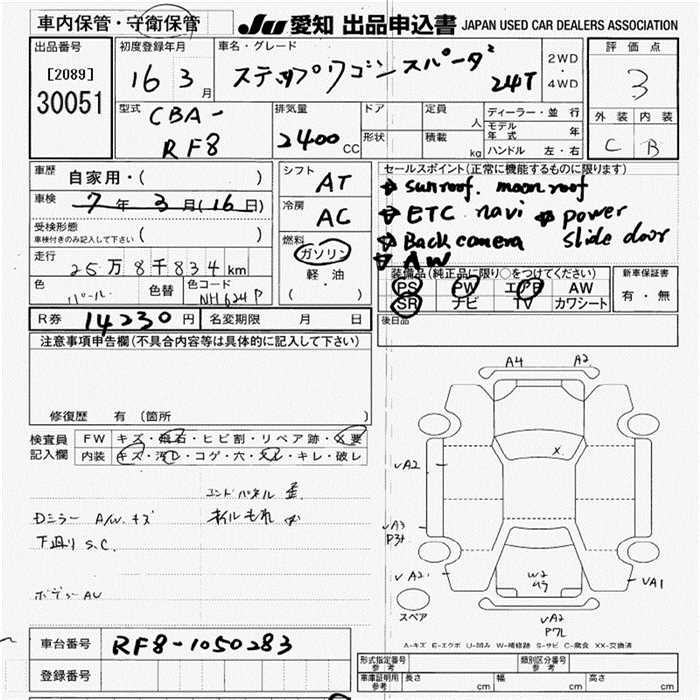 車内保管・守衛保管 JU 愛知 出品申込書 JAPAN USED CAR DEALERS ASSOCIATION
出品番号 初度登録年月 車名・グレード 2WD ・ 4WD 評価点
[2089] 30051
16年 3月 ステップワゴン スパーダ 24T 3
型式 CBA-RF8
排気量 2400 CC
ドア 形状
定員 人
積載 kg
ディーラー・並行
モデル年式 年
ハンドル 左・右
外装 内装
C B
車歴 自家用・( )
車検 7年 3月(16日)
受検形態 車検付きのみ記入して下さい ( )
走行 25万8千834km
色 パール 色替 色コード NH624P
シフト AT
冷房 AC
燃料 ガソリン
軽・油
( )
セールスポイント(正常に機能するものに限ります)
sunroof. moonroof
ETC navi power slide door
Back camera
AW
装備品(純正品に限り○をつけてください) 新車保証書
PS PW エアB AW 有・無
SR ナビ TV カワシート
後日品
R券 14230円 名変期限 月 日
注意事項申告欄(不具合内容等は具体的に記入して下さい)
修復歴 有(箇所 )
検査員記入欄
FW キズ・飛石・ヒビ割・リペア跡・X要
内装 キズ・汚レ・コゲ・穴・スレ・キレ・破レ
エンドパネル
Dミラー A/W.キズ オイルもれ
下廻り S.C.
ボデーAU
A4 A2
X
VA2
VA3
P3
VA2
W2
VA1
スペア
VA2
A-キズ E-エクボ U-凹み W-補修跡 S-サビ C-腐食 XX-交換済
車台番号 RF8-1050283
登録番号
形式指定番号 参考 類別区分番号 参考
車庫証明用 参考 長さ cm 幅 cm 高さ cm